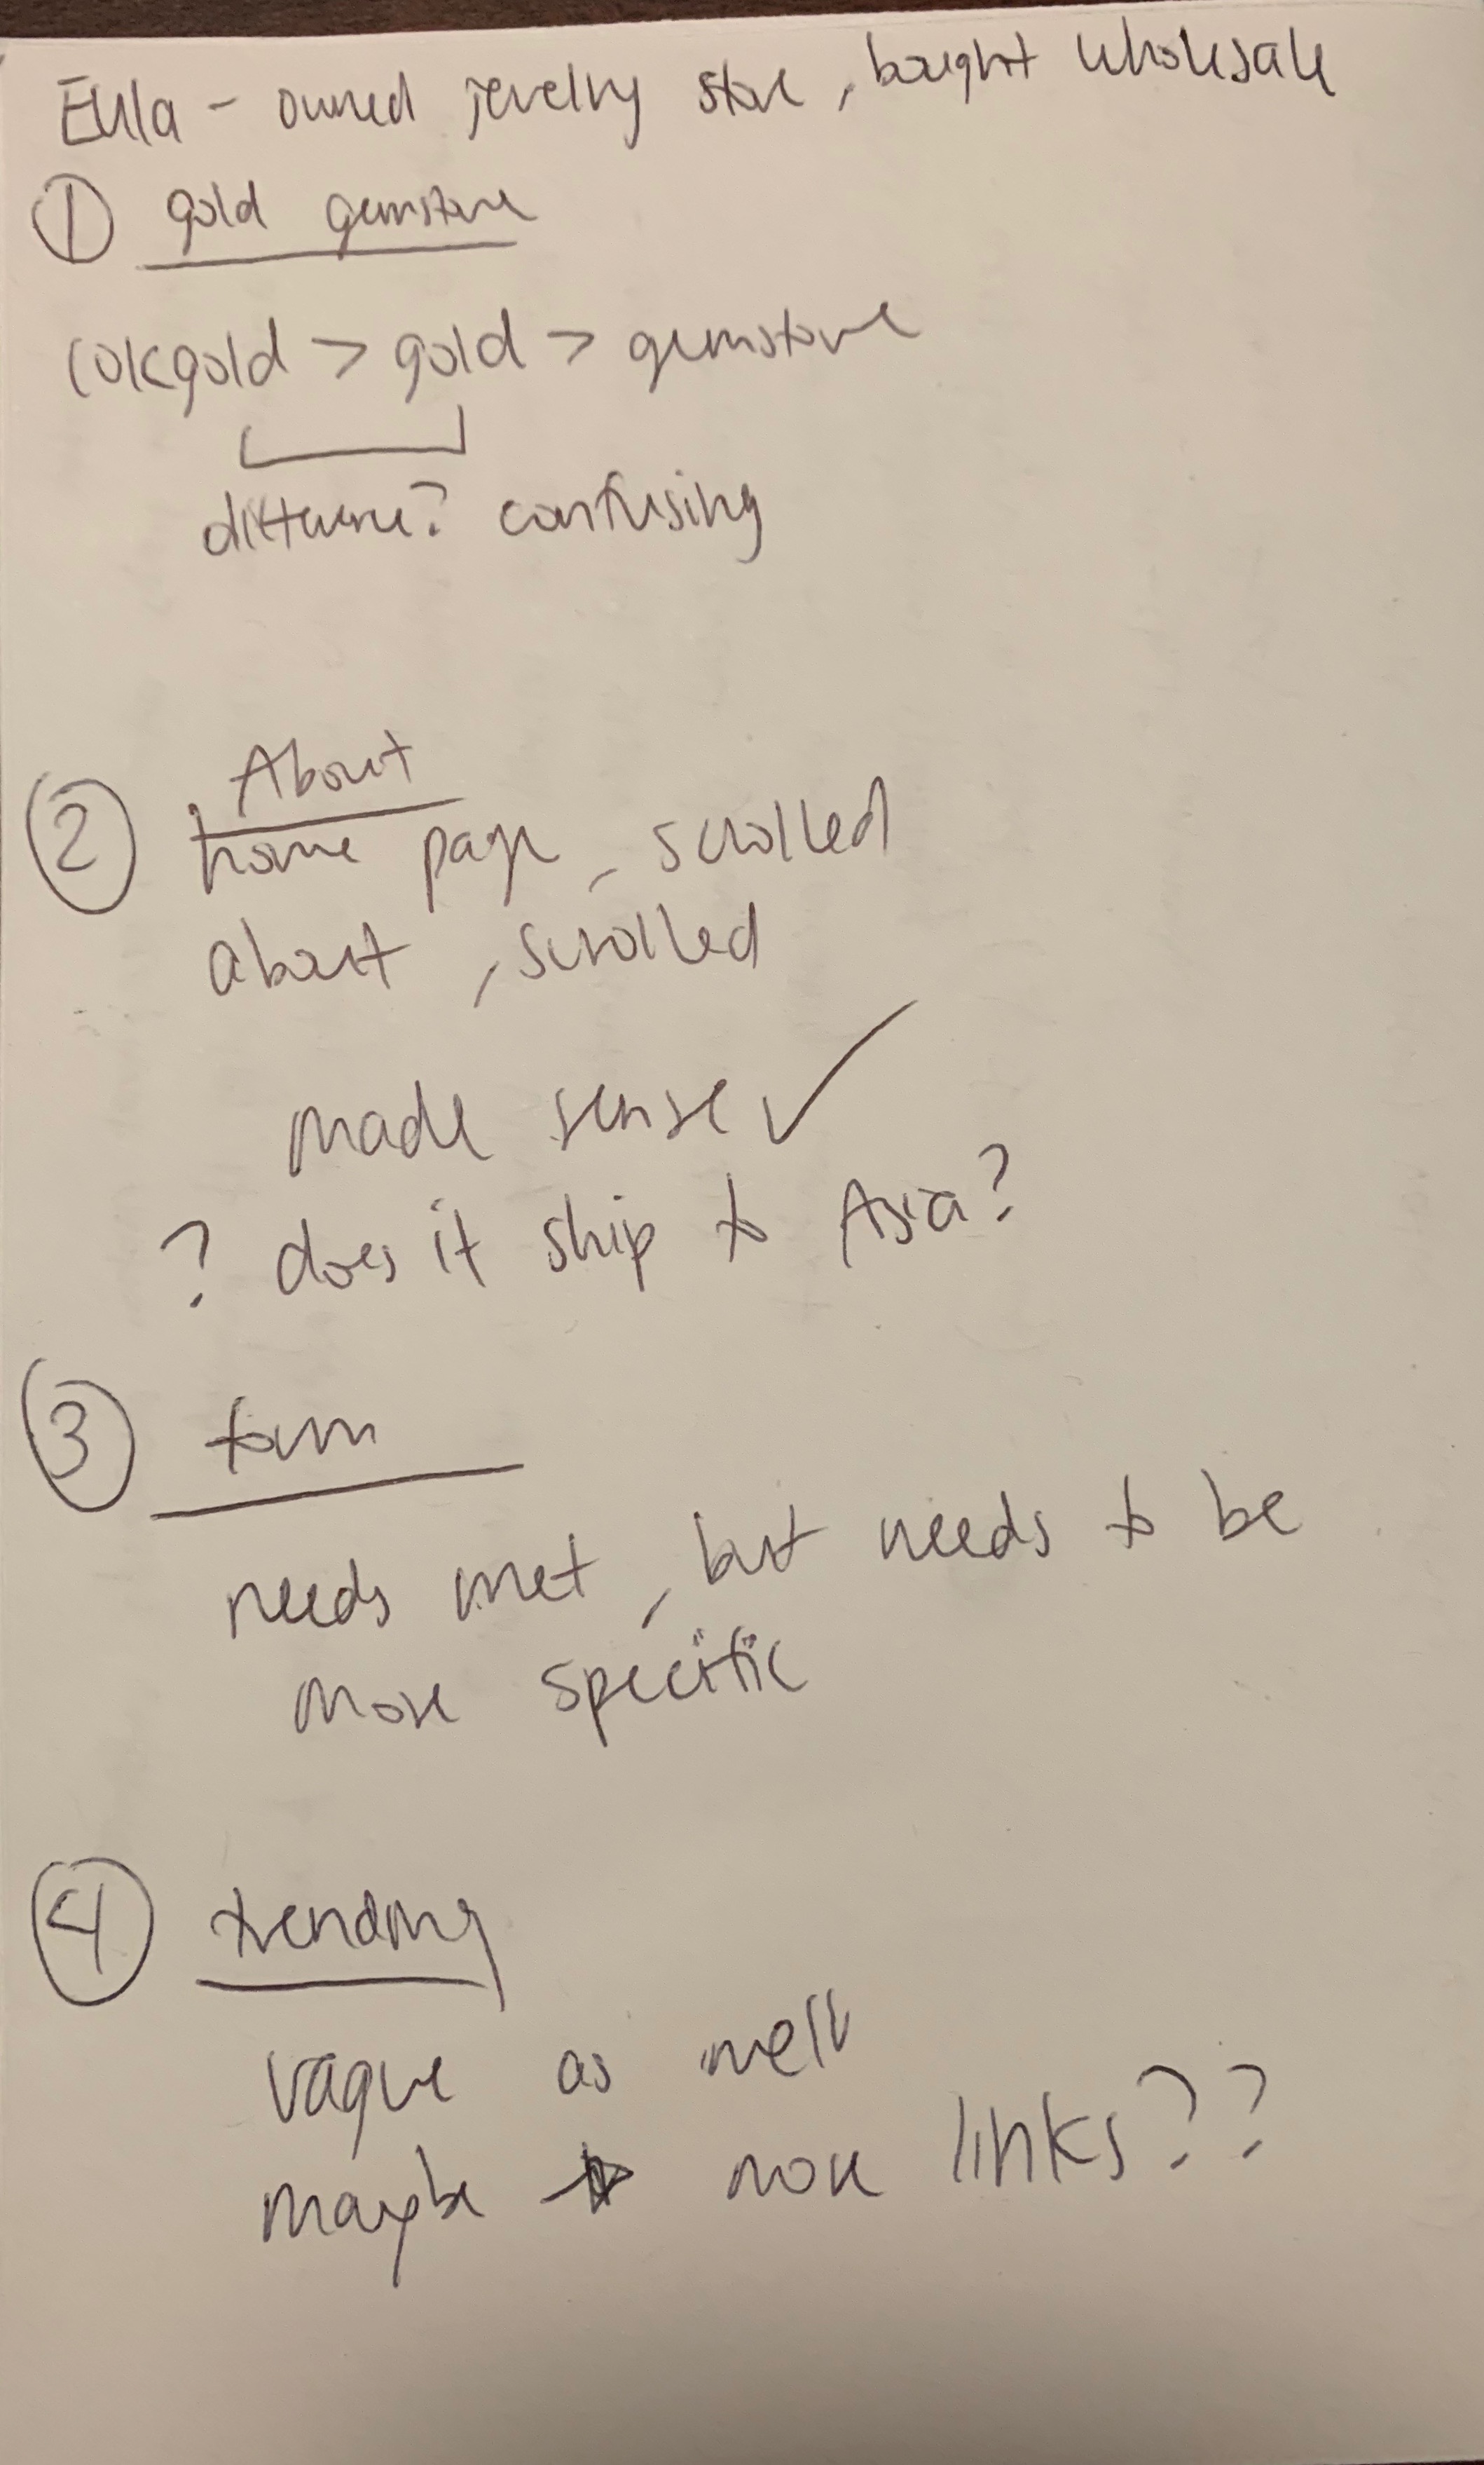 Eula - owned jewelry store, bought wholesale
① gold gemstone
10kgold > gold > gemstone
difference? confusing
② About
home page, scrolled
about, scrolled
made sense ✓
? does it ship to Asia?
③ form
needs met, but needs to be
more specific
④ trending
vague as well
maybe more links??